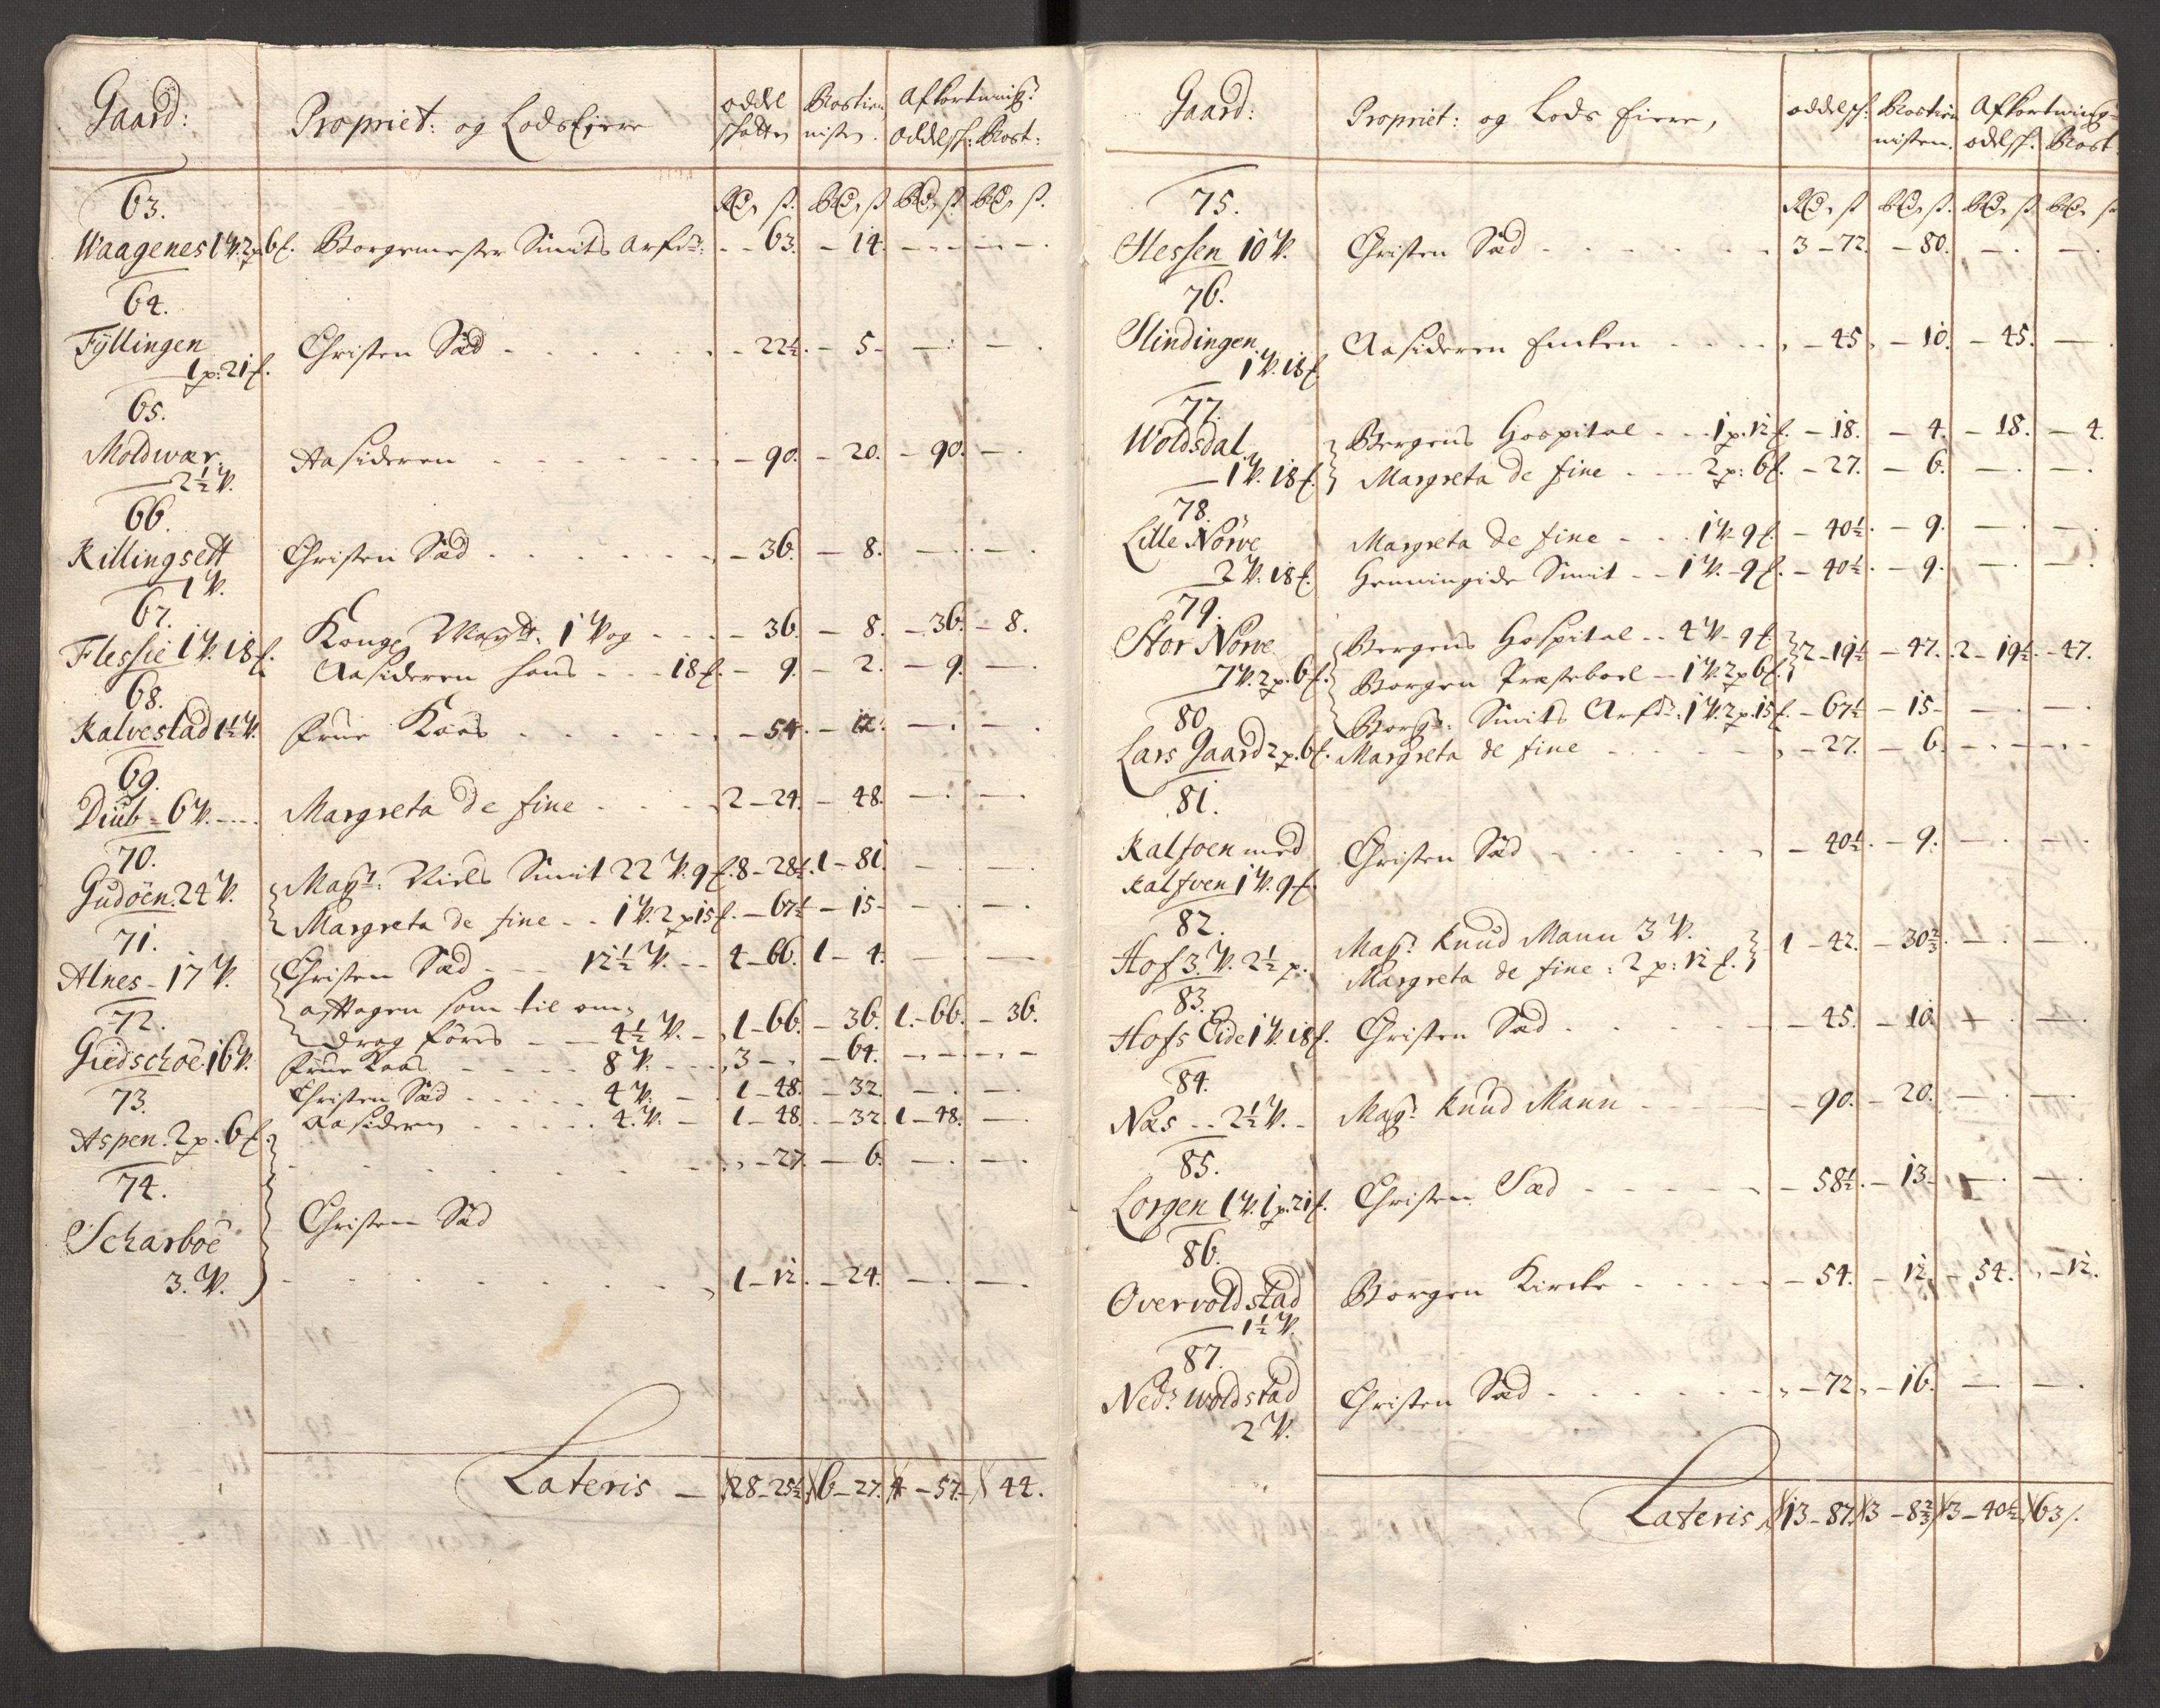 Gaard: Propriet: og Lods Ejere oddel schatten Rostienisten. Afkortning: oddelsch: Rost:
Rdr ß. Rdr ß Rdr ß. Rdr ß.
63.
Waagenes 1 V. 2 p 6 f. Borgemester Smits Arf: - - 63. - 14. - - - - -.
64.
Fÿllingen Christen Säd - - - - - - 22½. - 5 - - . - .
1 p: 21 f.
65.
Moldwær. Aasideren - - - - - - 90. - 20. - 90. - .
2½ V.
66.
Killingsett Christen Säd - - - - - - 36. - 8. - . - .
1 V.
67.
Flessie 1 V. 18 f. Konge Maÿtt. 1 V og - - - - 36. - 8. - 36. - 8.
Aasideren Hans - - - 18 f. - 9. - 2. - 9. - .
68.
Kalvestad 1½ V. Frue Kaas - - - - - - 54. - 12. - . - .
69.
Diub - 6 V. - - - Margreta de fine - - - - 2 - 24. - 48. - . - .
70.
Gudöen. 24 V. Mag: Niels Smit 22 V. 9 f. 8 - 28½. 1 - 81. - . - .
Margreta de fine - - 1 V. 2 p 15 f. - 67½ - 15 - - . - .
71.
Alnes - 17 V. Christen Sæd - - - 12½ V. - - 4 - 66. 1 - 4. - . - .
aftagen som til om-
drag föres - - 4½ V. - 1 - 66. - 36. 1. - 66. - 36.
72.
Giedschöe. 16 V. Frue Kaas - - - - - 8 V. - - - 3 - - 64. - - - - -
Christen Säd - - - - - 4 V. - 1 - 48. - 32. - . - .
Aasideren - - - - - 4. V. - 1 - 48. - 32. 1 - 48. - .
73.
Aspen. 2 p. 6 f. - - - - - - - - 27. - 6. - . - .
74.
Scharböe Christen Säd
3. V. - - - - - - - 1 - 12. - 24. - . - .
Lateris - 28 - 25½ 6 - 27. 4 - 57 - 44.
Gaard: Propriet: og Lods Eiere, oddelsch: Rostienisten. Afkortning: odelsch. Rost.
Rdr ß Rdr ß. Rdr ß Rdr ß
75.
Hessen 10 V. Christen Säd - - - - - - 3 - 72. - 80. - . - .
76.
Slindingen Aasideren Enken - - - - - 45 - 10. - 45. - .
1 V. 18 f.
77.
Woldsdal Bergens Hospital - - 1 p. 12 f. - 18. - 4. - 18. - 4.
1 V. 18 f. Margreta de fine - - - 2 p: 6 f. - 27. - 6. - . - .
78.
Lille Nörve Margreta de fine - - - 1 V. 9 f. - 40½. - 9. - . - .
2 V. 18 f. Henningide Smit - - 1 V. - 9 f. - 40½. - 9. - . - .
79.
Stor Nörve Bergens Hospital - - 4 V - 9 f. 2 - 19½ - 47. 2 - 19½. - 47.
7 V. 2 p. 6 f. Borgen Præsteboel - 1 V. 2 p 6 f.
Borg: Smits Arf: 1 V. 2 p. 15 f. - 67½ - 15 - - . - .
80.
Lars Gaard 2 p. 6 f. Margreta de fine - - - - - - 27. - 6. - - - - -
81.
Kalfoen med Christen Säd - - - - - - 40½. - 9. - . - .
kalfven 1 V. 9 f.
82.
Hof 3. V. 2½ p. Mag: Knud Mann 3 V. 1 - 42. - 30⅔. - . - .
Margreta de fine: 2 p: 12 f.
83.
Hofs Eide 1 V. 18 f. Christen Säd - - - - - - 45. - 10. - . - .
84.
Næs - - 2½ V. - Mag: Knud Mann - - - - - 90. - 20. - . - .
85.
Lorgen 1 V. 1 p. 21 f. Christen Sæd - - - - - - 58½. - 13 - - . - .
86.
Overvoldstad Borgen Kircke - - - - - - 54. - 12. - 54. - 12.
1½ V.
87.
Ned: woldstad Christen Sæd - - - - - - 72. - 16. - . - .
2 V.
Lateris 13 - 87. 3 - 8⅔ 3 - 40½ 63 ß.